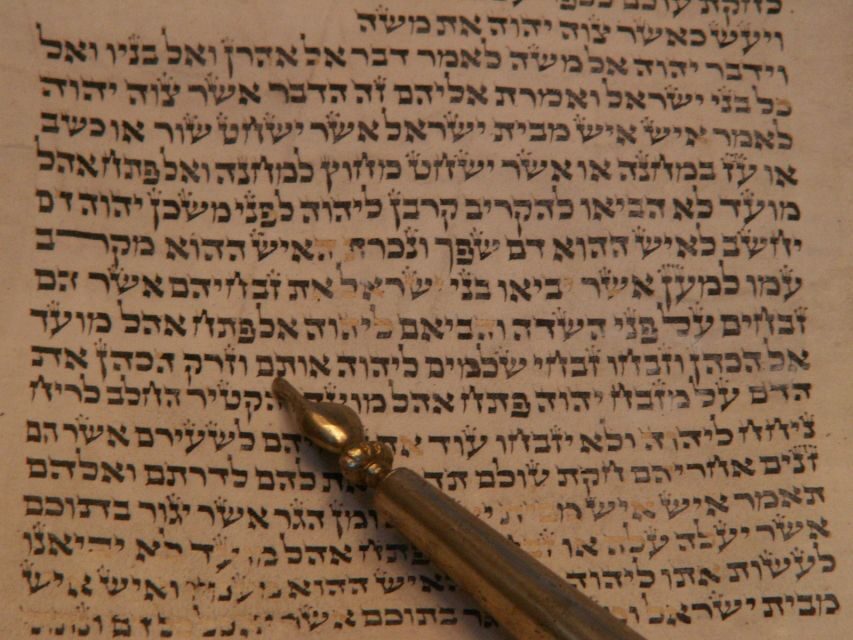 ויעש כאשר צוה יהוה את משה
וידבר יהוה אל משה לאמר דבר אל אהרן ואל בניו ואל
כל בני ישראל ואמרת אליהם זה הדבר אשר צוה יהוה
לאמר איש איש מבית ישראל אשר ישחט שור או כשב
או עז במחנה או אשר ישחט מחוץ למחנה ואל פתח אהל
מועד לא הביאו להקריב קרבן ליהוה לפני משכן יהוה דם
יחשב לאיש ההוא דם שפך ונכרת האיש ההוא מקרב
עמו למען אשר יביאו בני ישראל את זבחיהם אשר הם
זבחים על פני השדה והביאם ליהוה אל פתח אהל מועד
אל הכהן וזבחו זבחי שלמים ליהוה אותם וזרק הכהן את
הדם על מזבח יהוה פתח אהל מועד והקטיר החלב לריח
ניחח ליהוה ולא יזבחו עוד את לשעירם אשר הם
זנים אחריהם חקת עולם להם לדרתם ואלהם
תאמר איש איש ומן הגר אשר יגור בתוכם
אשר יעלה עלה או פתח אהל מועד לא יביאנו
לעשות אתו ליהוה האיש ההוא מעמיו ואיש איש
מבית ישראל בתוכם אשר